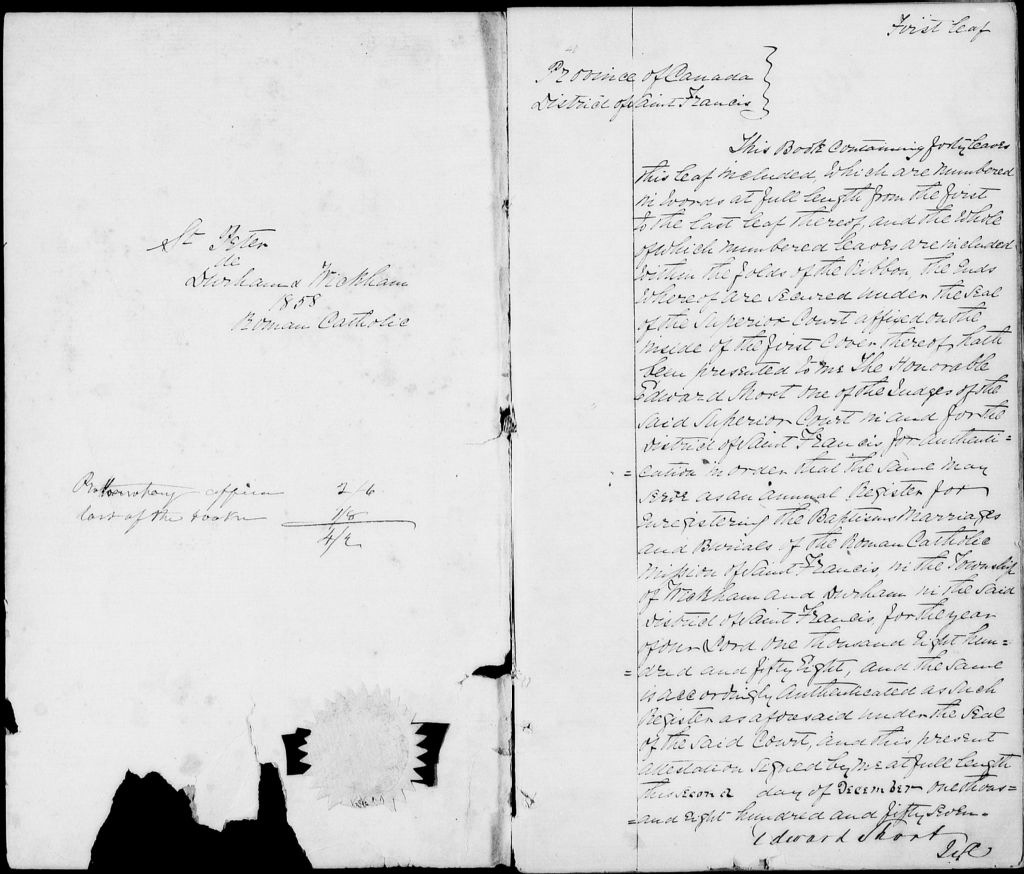 St Peter
de
Durham & Wickham
1858
Roman Catholic
Prothonotary office 2/6
Cost of the book 1/8
4/2
First leaf
Province of Canada
District of Saint Francis
This Book Containing forty leaves
this leaf included, which are numbered
in words at full length from the first
to the last leaf thereof, and the whole
of which numbered leaves are included
within the folds of the Ribbon the Ends
whereof are secured under the seal
of the Superior Court affixed on the
inside of the first Cover thereof, hath
been presented to me The Honorable
Edward Short one of the Judges of the
said Superior Court in and for the
District of Saint Francis for authenti-
=cation in order that the same may
serve as an annual Register for
Enregistering the Baptisms Marriages
and Burials of the Roman Catholic
Mission of Saint Francis, in the Township
of Wickham and Durham in the said
District of Saint Francis, for the year
of our Lord one thousand Eight hun=
=dred and fifty Eight, and the same
is accordingly Authenticated as such
Register as aforesaid under the seal
of the said Court, and this present
attestation signed by me at full length
this second day of December one thous=
=and eight hundred and fifty seven.
Edward Short